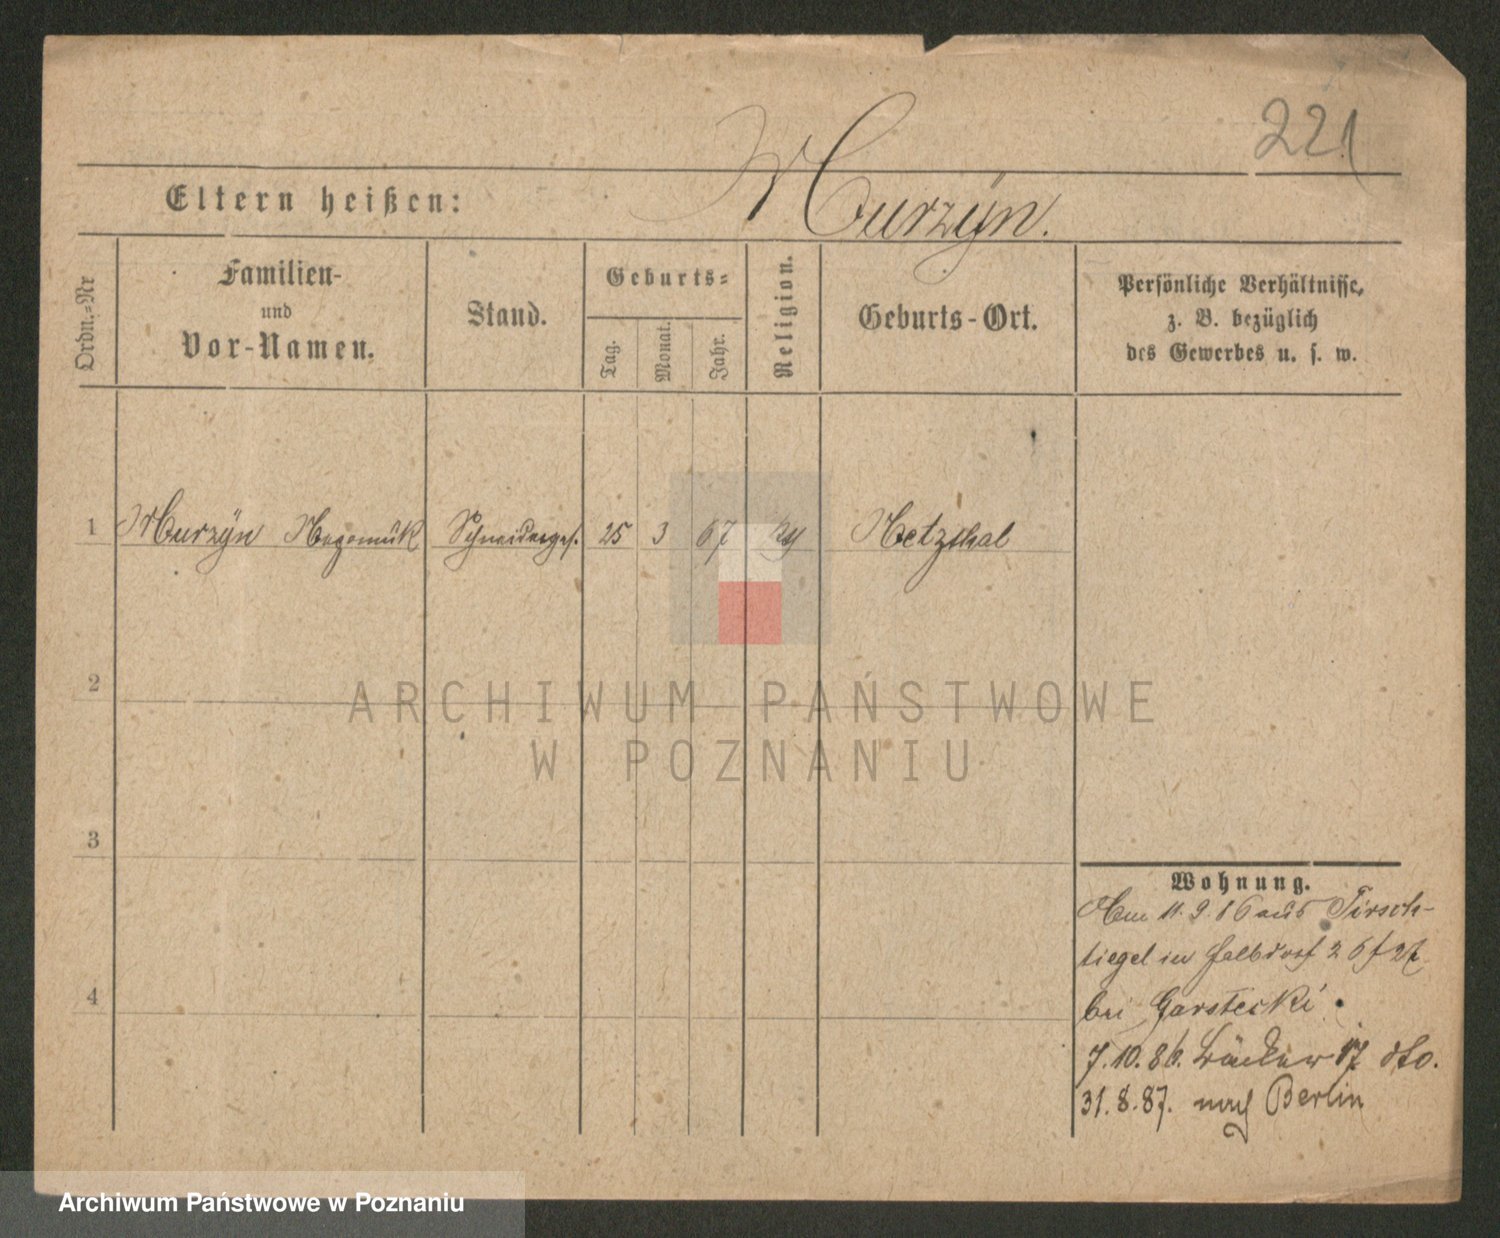 221
Eltern heißen: Murzÿn.
Ordn.=Nr
Familien-
und
Vor-Namen.
Stand.
Geburts=
Tag.
Monat.
Jahr.
Religion.
Geburts-Ort.
Persönliche Verhältnisse,
z. B. bezüglich
des Gewerbes u. s. w.
1 Murzÿn Schneiderges. 25 3 67
2
3
4
Wohnung.
11. 9. 86 aus Tirsch-
tiegel in Halbdorf
bei Garstecki
7. 10. 86. Bäcker 17 dto.
31. 8. 87. nach Berlin
ARCHIWUM PAŃSTWOWE
W POZNANIU
Archiwum Państwowe w Poznaniu